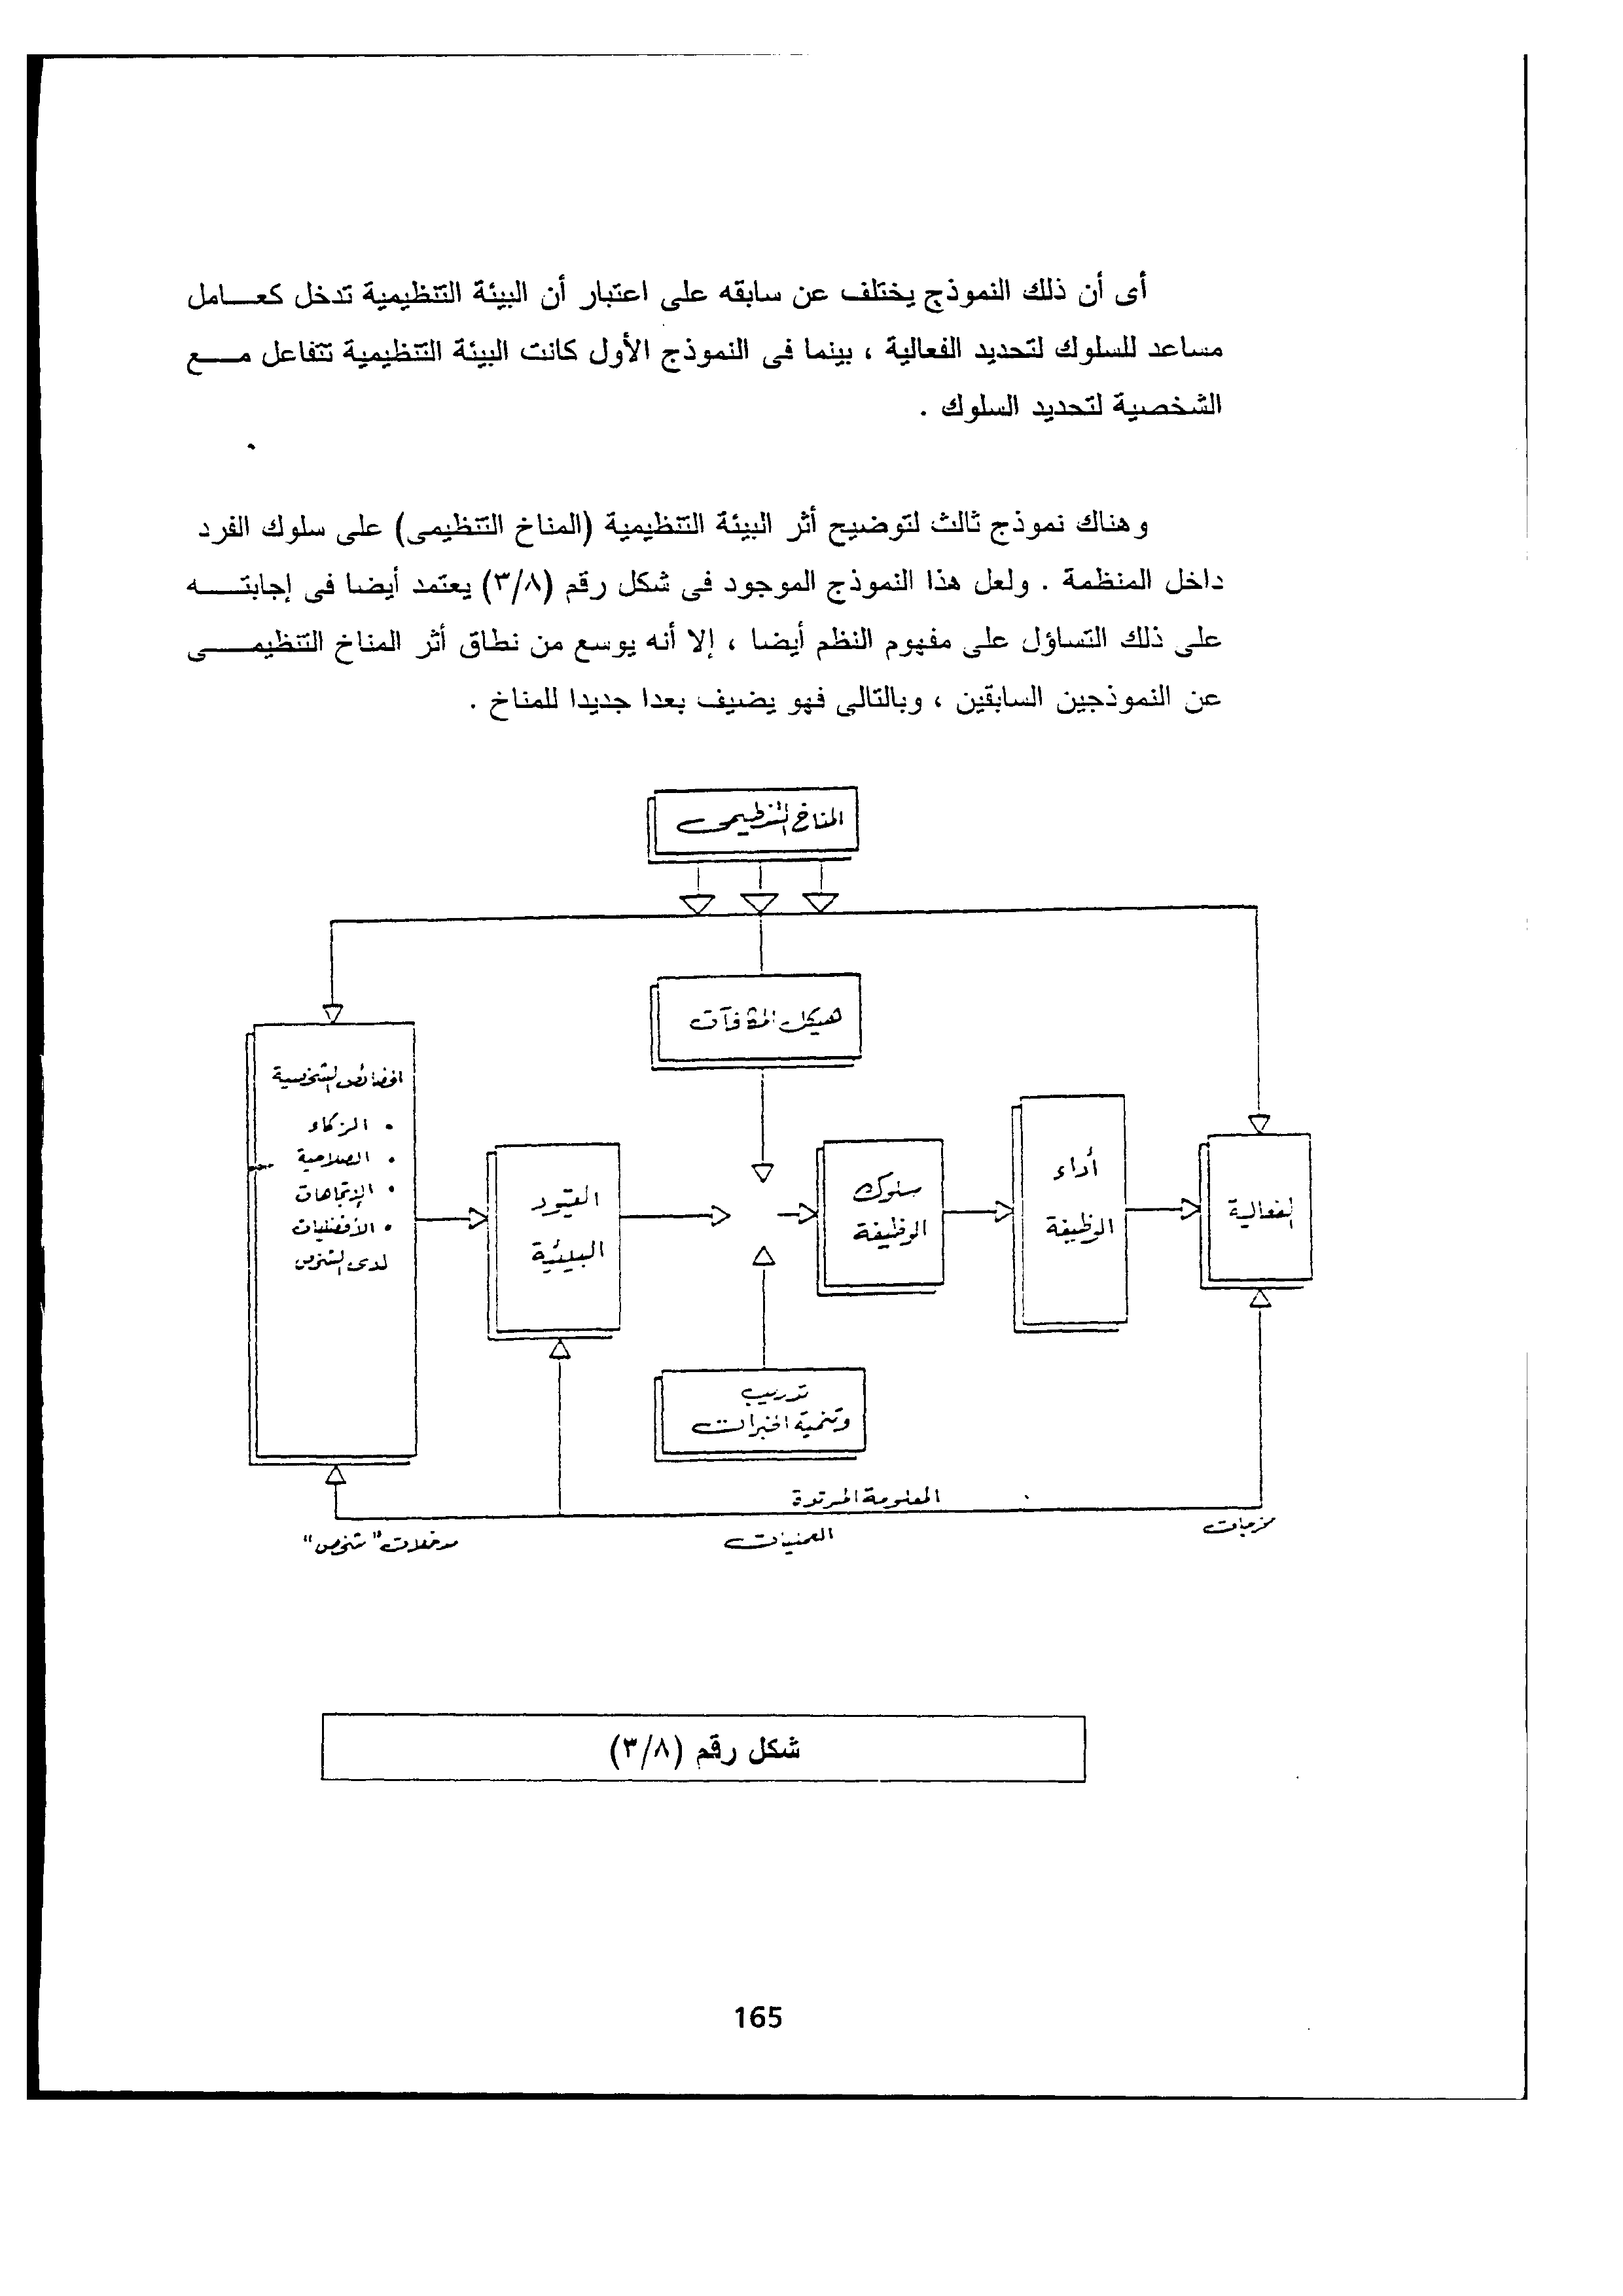 أى أن ذلك النموذج يختلف عن سابقه على اعتبار أن البيئة التنظيمية تدخل كعـــامل
مساعد للسلوك لتحديد الفعالية ، بينما فى النموذج الأول كانت البيئة التنظيمية تتفاعل مـــع
الشخصية لتحديد السلوك .
وهناك نموذج ثالث لتوضيح أثر البيئة التنظيمية (المناخ التنظيمى) على سلوك الفرد
داخل المنظمة . ولعل هذا النموذج الموجود فى شكل رقم (٣/٨) يعتمد أيضا فى إجابتـــه
على ذلك التساؤل على مفهوم النظم أيضا ، إلا أنه يوسع من نطاق أثر المناخ التنظيمـــى
عن النموذجين السابقين ، وبالتالى فهو يضيف بعدا جديدا للمناخ .
المناخ التنظيمى
هيكل المكافآت
الخصائص الشخصية
• الزكاء
• الصلاحية
• الإتجاهات
• الأفضليات
لدى الشخص
القيود
البيئية
سلوك
الوظيفة
أداء
الوظيفة
الفعالية
تدريب
وتنمية الخبرات
المعلومة المرتدة
مدخلات "شخص"
العمليات
مخرجات
شكل رقم (٣/٨)
165